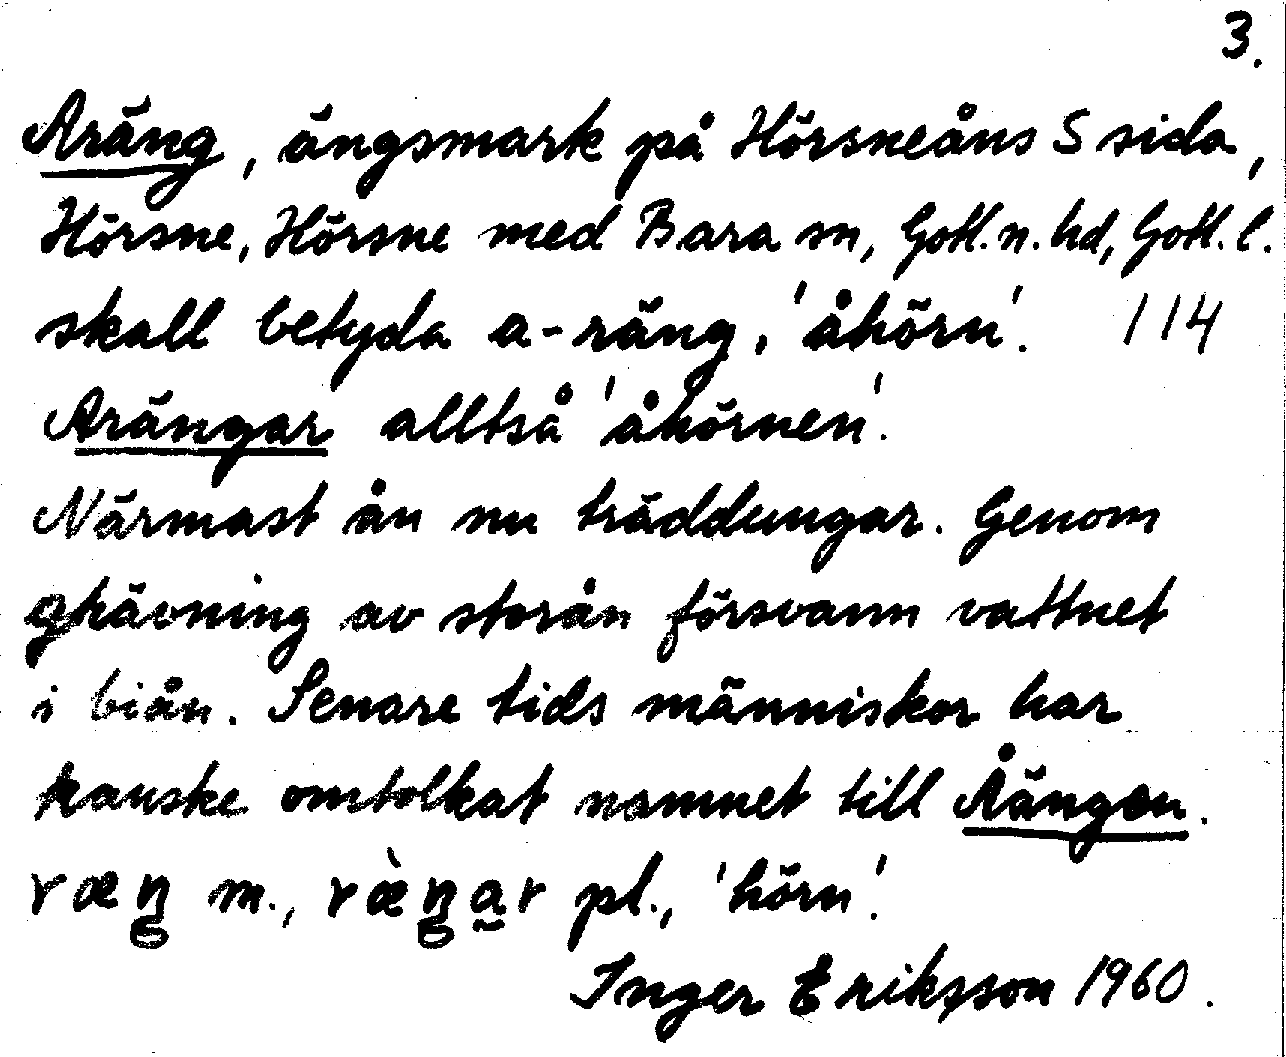 3.
Aräng, ängsmark på Hörsneåns S sida,
Hörsne, Hörsne med Bara sn, Gotl. n. hd, Gotl. l.
skall betyda a-räng, 'åhörn'. 114
Arängar alltså 'åhörnen'.
Närmast ån nu träddungar. Genom
ghävning av storån försvann vattnet
i biån. Senare tids människor har
kanske omtolkat namnet till Åängen.
ræŋ m., ræ̀ŋa̰r pl., 'hörn'.
Inger Eriksson 1960.